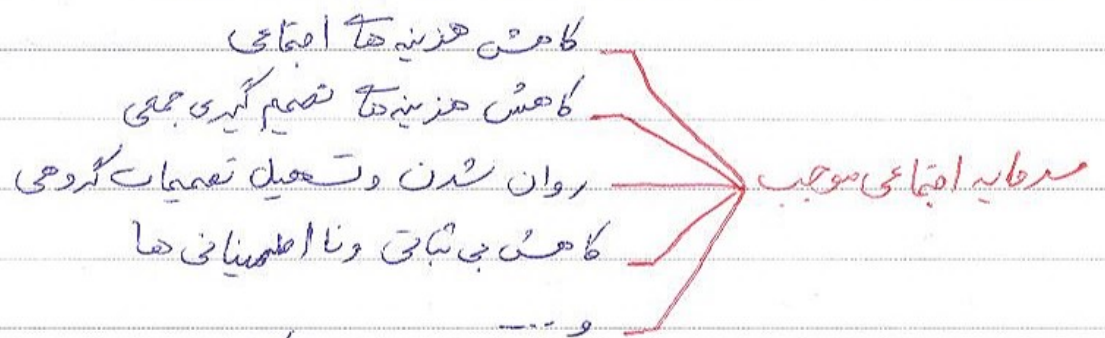 سرمایه اجتماعی موجب
کاهش هزینه های اجتماعی
کاهش هزینه های تصمیم گیری جمعی
روان شدن و تسهیل تصمیمات گروهی
کاهش بی ثباتی و نا اطمینانی ها
و ....